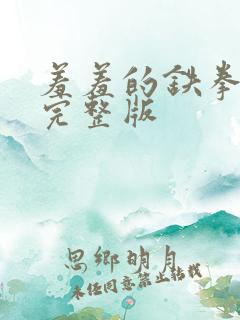 羞羞的铁拳
完整版
思乡明月
未经同意禁止转载